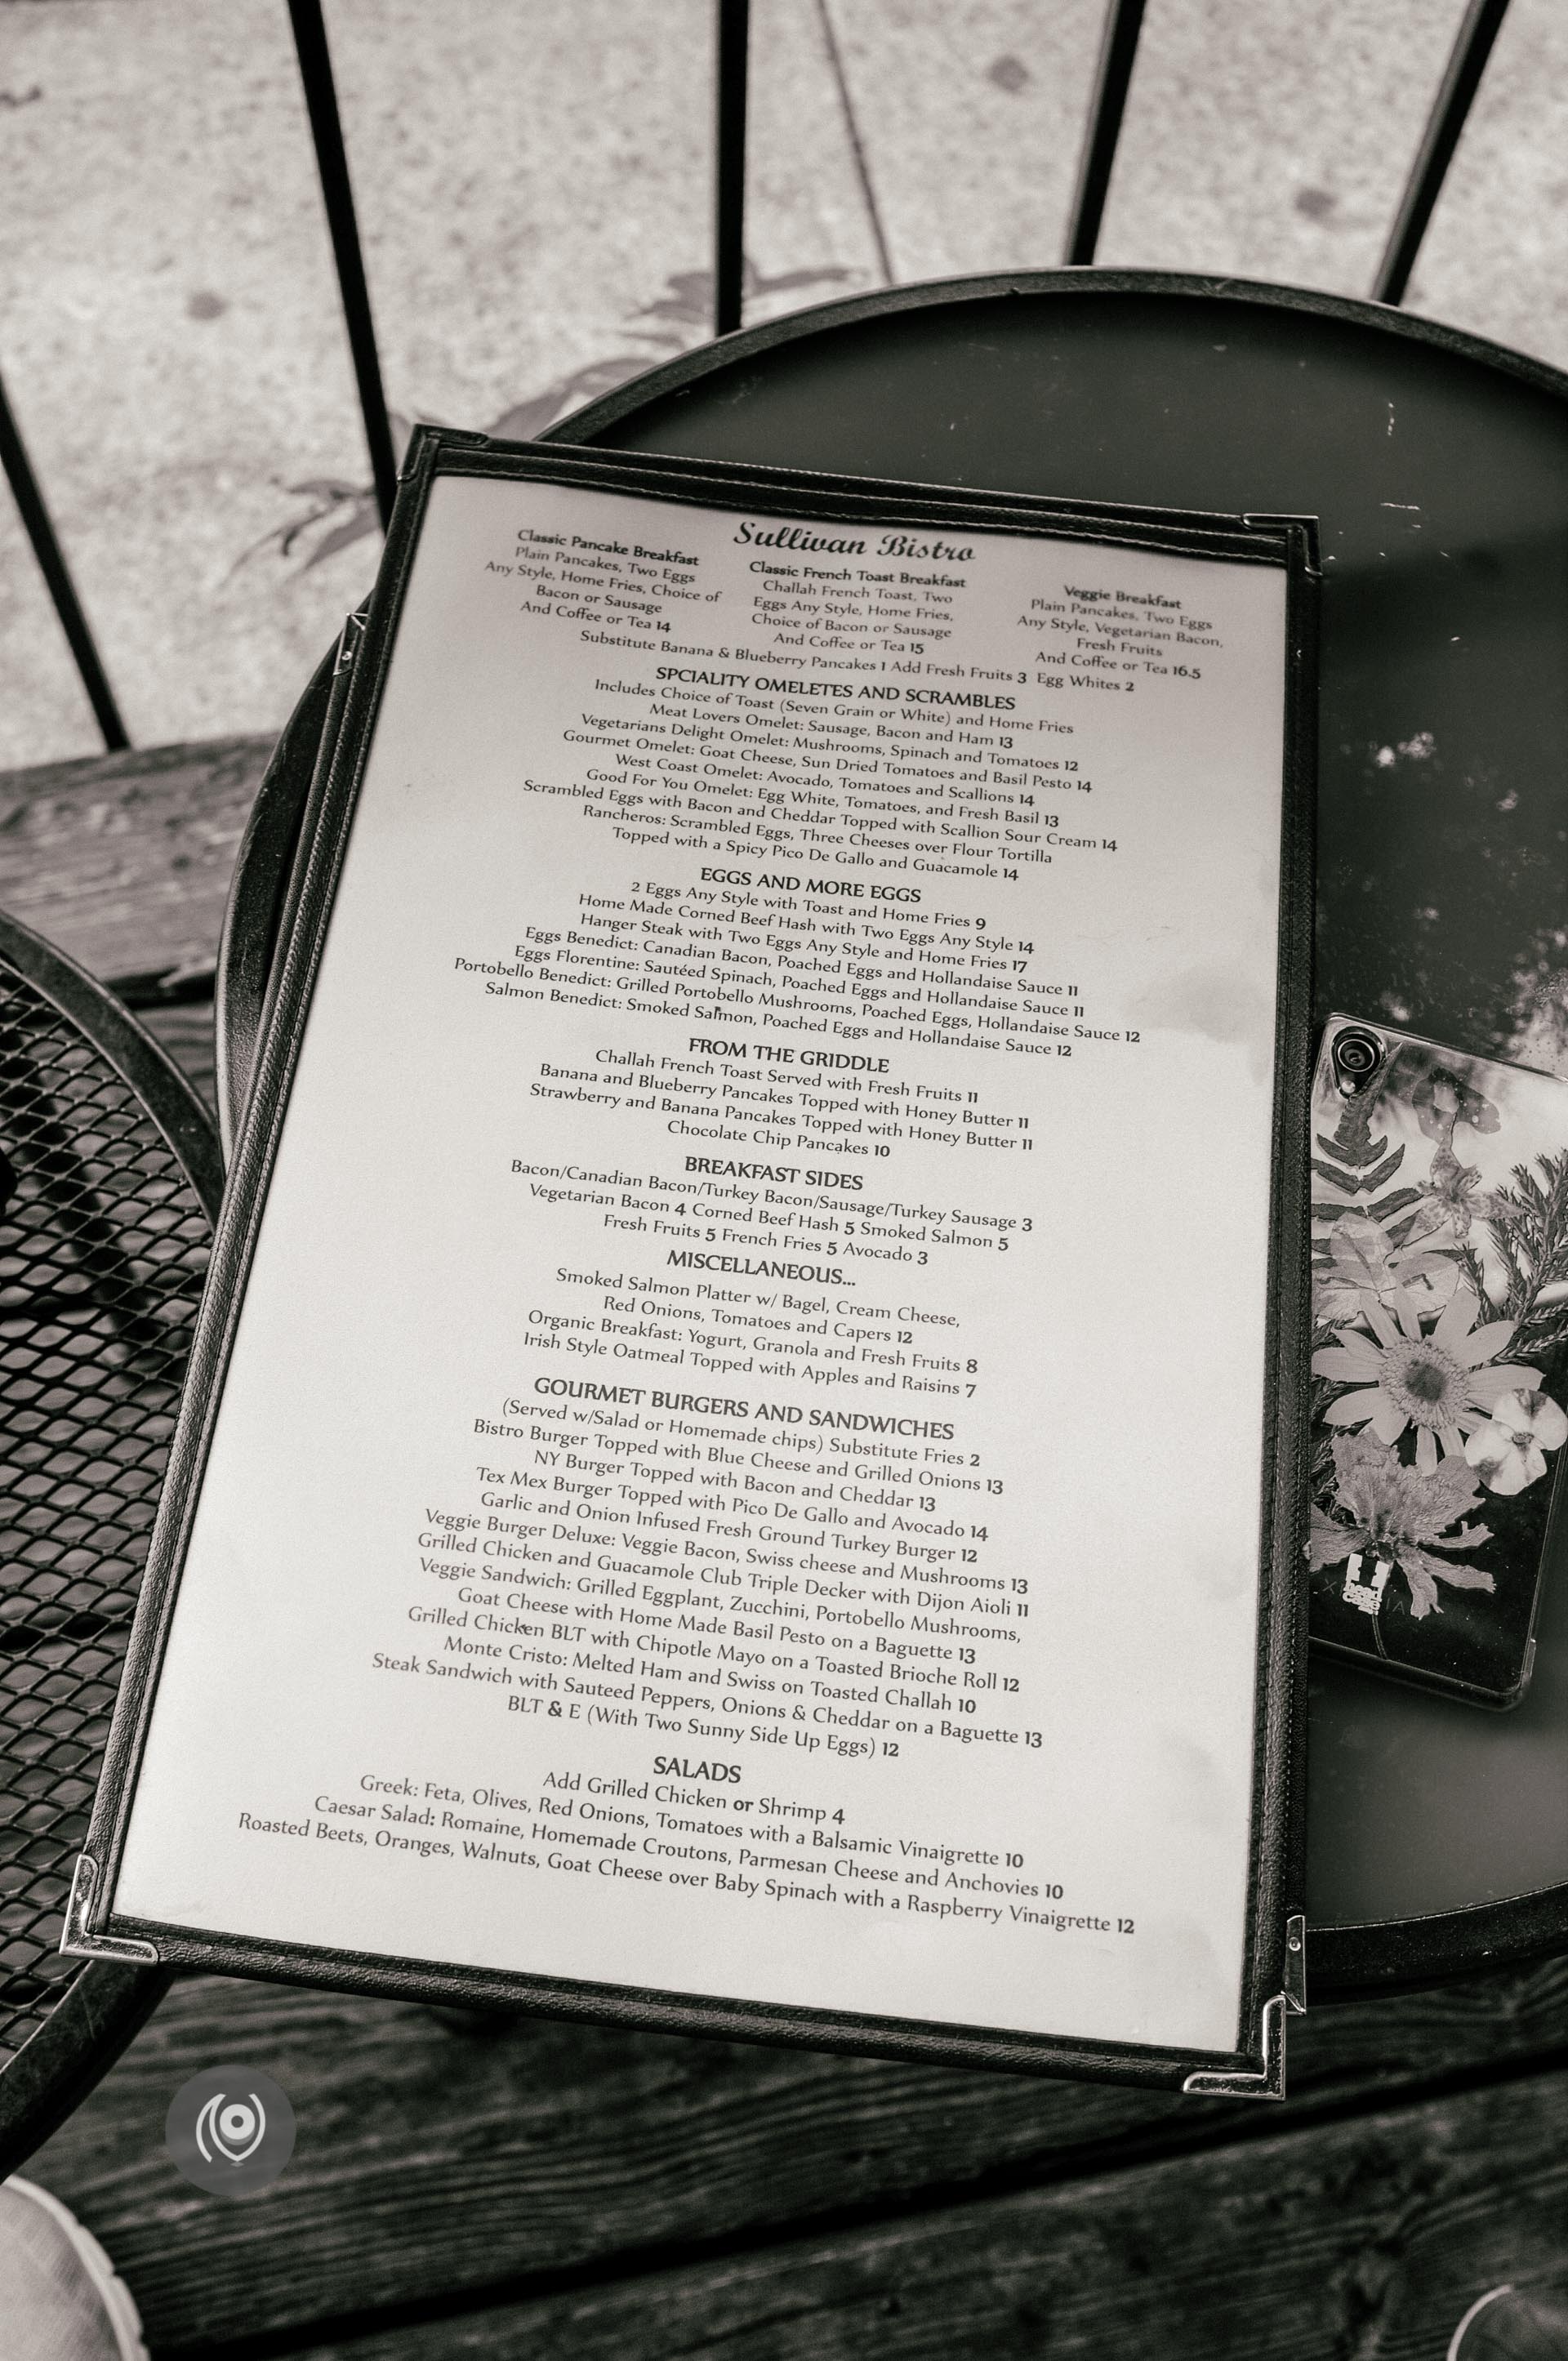 Sullivan Bistro
Classic Pancake Breakfast
Plain Pancakes, Two Eggs
Any Style, Home Fries, Choice of
Bacon or Sausage
And Coffee or Tea 14
Classic French Toast Breakfast
Challah French Toast, Two
Eggs Any Style, Home Fries,
Choice of Bacon or Sausage
And Coffee or Tea 15
Veggie Breakfast
Plain Pancakes, Two Eggs
Any Style, Vegetarian Bacon,
Fresh Fruits
And Coffee or Tea 16.5
Substitute Banana & Blueberry Pancakes 1 Add Fresh Fruits 3 Egg Whites 2
SPCIALITY OMELETES AND SCRAMBLES
Includes Choice of Toast (Seven Grain or White) and Home Fries
Meat Lovers Omelet: Sausage, Bacon and Ham 13
Vegetarians Delight Omelet: Mushrooms, Spinach and Tomatoes 12
Gourmet Omelet: Goat Cheese, Sun Dried Tomatoes and Basil Pesto 14
West Coast Omelet: Avocado, Tomatoes and Scallions 14
Good For You Omelet: Egg White, Tomatoes, and Fresh Basil 13
Scrambled Eggs with Bacon and Cheddar Topped with Scallion Sour Cream 14
Rancheros: Scrambled Eggs, Three Cheeses over Flour Tortilla
Topped with a Spicy Pico De Gallo and Guacamole 14
EGGS AND MORE EGGS
2 Eggs Any Style with Toast and Home Fries 9
Home Made Corned Beef Hash with Two Eggs Any Style 14
Hanger Steak with Two Eggs Any Style and Home Fries 17
Eggs Benedict: Canadian Bacon, Poached Eggs and Hollandaise Sauce 11
Eggs Florentine: Sautéed Spinach, Poached Eggs and Hollandaise Sauce 11
Portobello Benedict: Grilled Portobello Mushrooms, Poached Eggs, Hollandaise Sauce 12
Salmon Benedict: Smoked Salmon, Poached Eggs and Hollandaise Sauce 12
FROM THE GRIDDLE
Challah French Toast Served with Fresh Fruits 11
Banana and Blueberry Pancakes Topped with Honey Butter 11
Strawberry and Banana Pancakes Topped with Honey Butter 11
Chocolate Chip Pancakes 10
BREAKFAST SIDES
Bacon/Canadian Bacon/Turkey Bacon/Sausage/Turkey Sausage 3
Vegetarian Bacon 4 Corned Beef Hash 5 Smoked Salmon 5
Fresh Fruits 5 French Fries 5 Avocado 3
MISCELLANEOUS...
Smoked Salmon Platter w/ Bagel, Cream Cheese,
Red Onions, Tomatoes and Capers 12
Organic Breakfast: Yogurt, Granola and Fresh Fruits 8
Irish Style Oatmeal Topped with Apples and Raisins 7
GOURMET BURGERS AND SANDWICHES
(Served w/Salad or Homemade chips) Substitute Fries 2
Bistro Burger Topped with Blue Cheese and Grilled Onions 13
NY Burger Topped with Bacon and Cheddar 13
Tex Mex Burger Topped with Pico De Gallo and Avocado 14
Garlic and Onion Infused Fresh Ground Turkey Burger 12
Veggie Burger Deluxe: Veggie Bacon, Swiss cheese and Mushrooms 13
Grilled Chicken and Guacamole Club Triple Decker with Dijon Aioli 11
Veggie Sandwich: Grilled Eggplant, Zucchini, Portobello Mushrooms,
Goat Cheese with Home Made Basil Pesto on a Baguette 13
Grilled Chicken BLT with Chipotle Mayo on a Toasted Brioche Roll 12
Monte Cristo: Melted Ham and Swiss on Toasted Challah 10
Steak Sandwich with Sauteed Peppers, Onions & Cheddar on a Baguette 13
BLT & E (With Two Sunny Side Up Eggs) 12
SALADS
Add Grilled Chicken or Shrimp 4
Greek: Feta, Olives, Red Onions, Tomatoes with a Balsamic Vinaigrette 10
Caesar Salad: Romaine, Homemade Croutons, Parmesan Cheese and Anchovies 10
Roasted Beets, Oranges, Walnuts, Goat Cheese over Baby Spinach with a Raspberry Vinaigrette 12